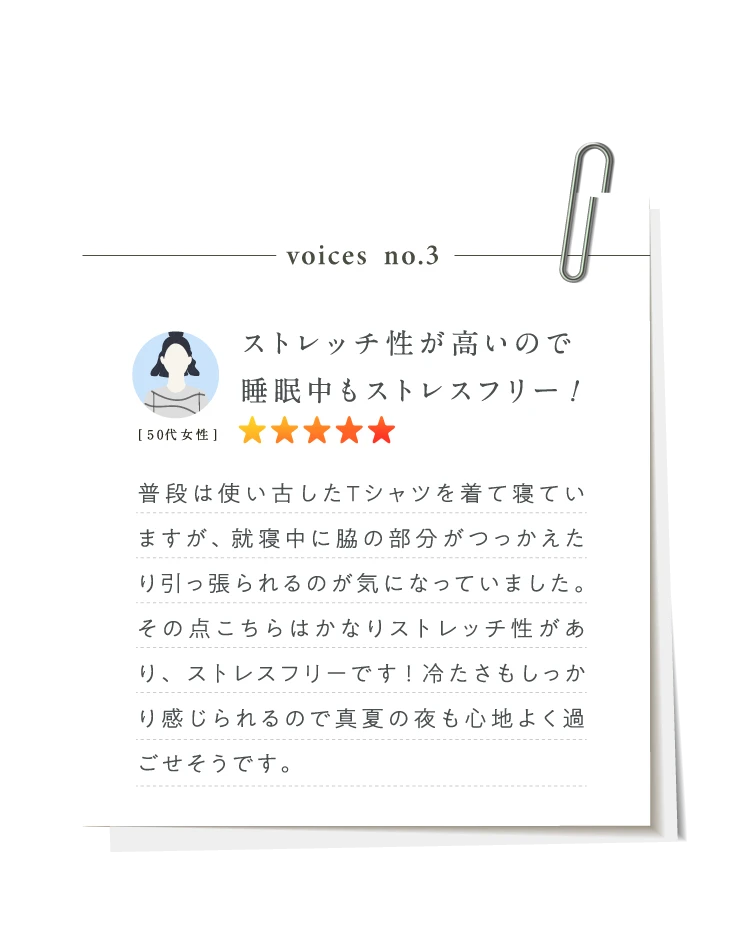 voices no.3
ストレッチ性が高いので
睡眠中もストレスフリー!
[50代女性]
普段は使い古したTシャツを着て寝てい
ますが、就寝中に脇の部分がつっかえた
り引っ張られるのが気になっていました。
その点こちらはかなりストレッチ性があ
り、ストレスフリーです!冷たさもしっか
り感じられるので真夏の夜も心地よく過
ごせそうです。